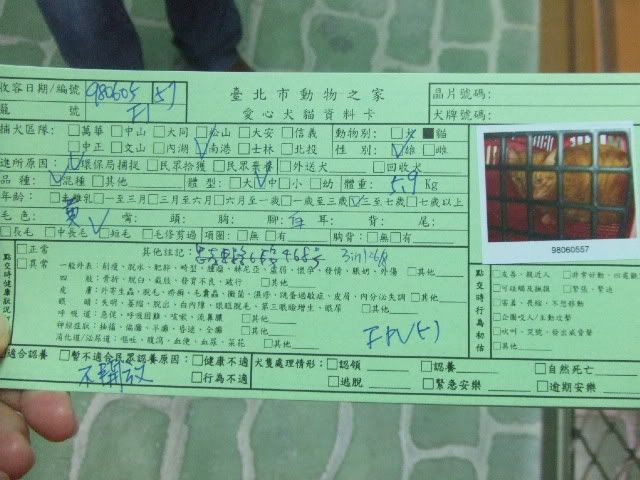 收容日期/編號 980605 57 臺北市動物之家 晶片號碼:
籠 號 F1 愛心犬貓資料卡 犬牌號碼:
捕犬區隊: □萬華 □中山 □大同 □松山 □大安 □信義 動物別: □犬 ■貓
□中正 □文山 □內湖 ☑南港 □士林 □北投 性 別: ☑雄 □雌
進所原因: ☑環保局捕捉 □民眾拾獲 □民眾棄養 □外送犬 □回收犬
品 種: ☑混種 □其他 體 型: □大 ☑中 □小 □幼 體重: 5.9 Kg
年齡: □未離乳 □一至三月 □三月至六月 □六月至一歲 □一歲至三歲 ☑三至七歲 □七歲以上
毛 色: 黃 嘴: 頭: 胸: 腳: 白 耳: 背: 尾:
□長毛 □中長毛 ☑短毛 □毛修剪過 項圈: □無 □有 胸背: □無 □有
98060557
點交時健康狀況
□正常 其他註記: 468號
□異常 一般外表: 削瘦、脫水、鞭跡、畸型、腫瘤、林尼亞、虛弱、懷孕、發情、脹奶、外傷 □其他
四 肢: 骨折、脫臼、截肢、發育不良、跛行 □其他
皮 膚: 外寄生蟲、脫毛、疥癬、毛囊蟲、黴菌、濕疹、跳蚤過敏症、皮屑、內分泌失調 □其他
眼 睛: 失明、萎縮、脫出、白內障、眼瞼脫毛、第三眼瞼增生、眼屎 □其他
呼 吸 道: 急促、呼吸困難、咳嗽、流鼻膿 □其他
神經症狀: 抽搐、偏癱、半癱、昏迷、全癱 □其他
消化道/泌尿道: 嘔吐、腹瀉、血便、血尿、菜花 □其他
FPV(5)
點交時行為初估
□友善、親近人 □非常好動
□可碰觸及撫摸 □緊張、緊迫
□害羞、畏縮、不想移動
□企圖咬人/主動攻擊
□吠叫、哭號、發出威脅聲
□其他
適合認養 □暫不適合民眾認養原因: □健康不適 犬隻處理情形: □認領 □認養 □自然死亡
不開放 □行為不適 □逃脫 □緊急安樂 □逾期安樂